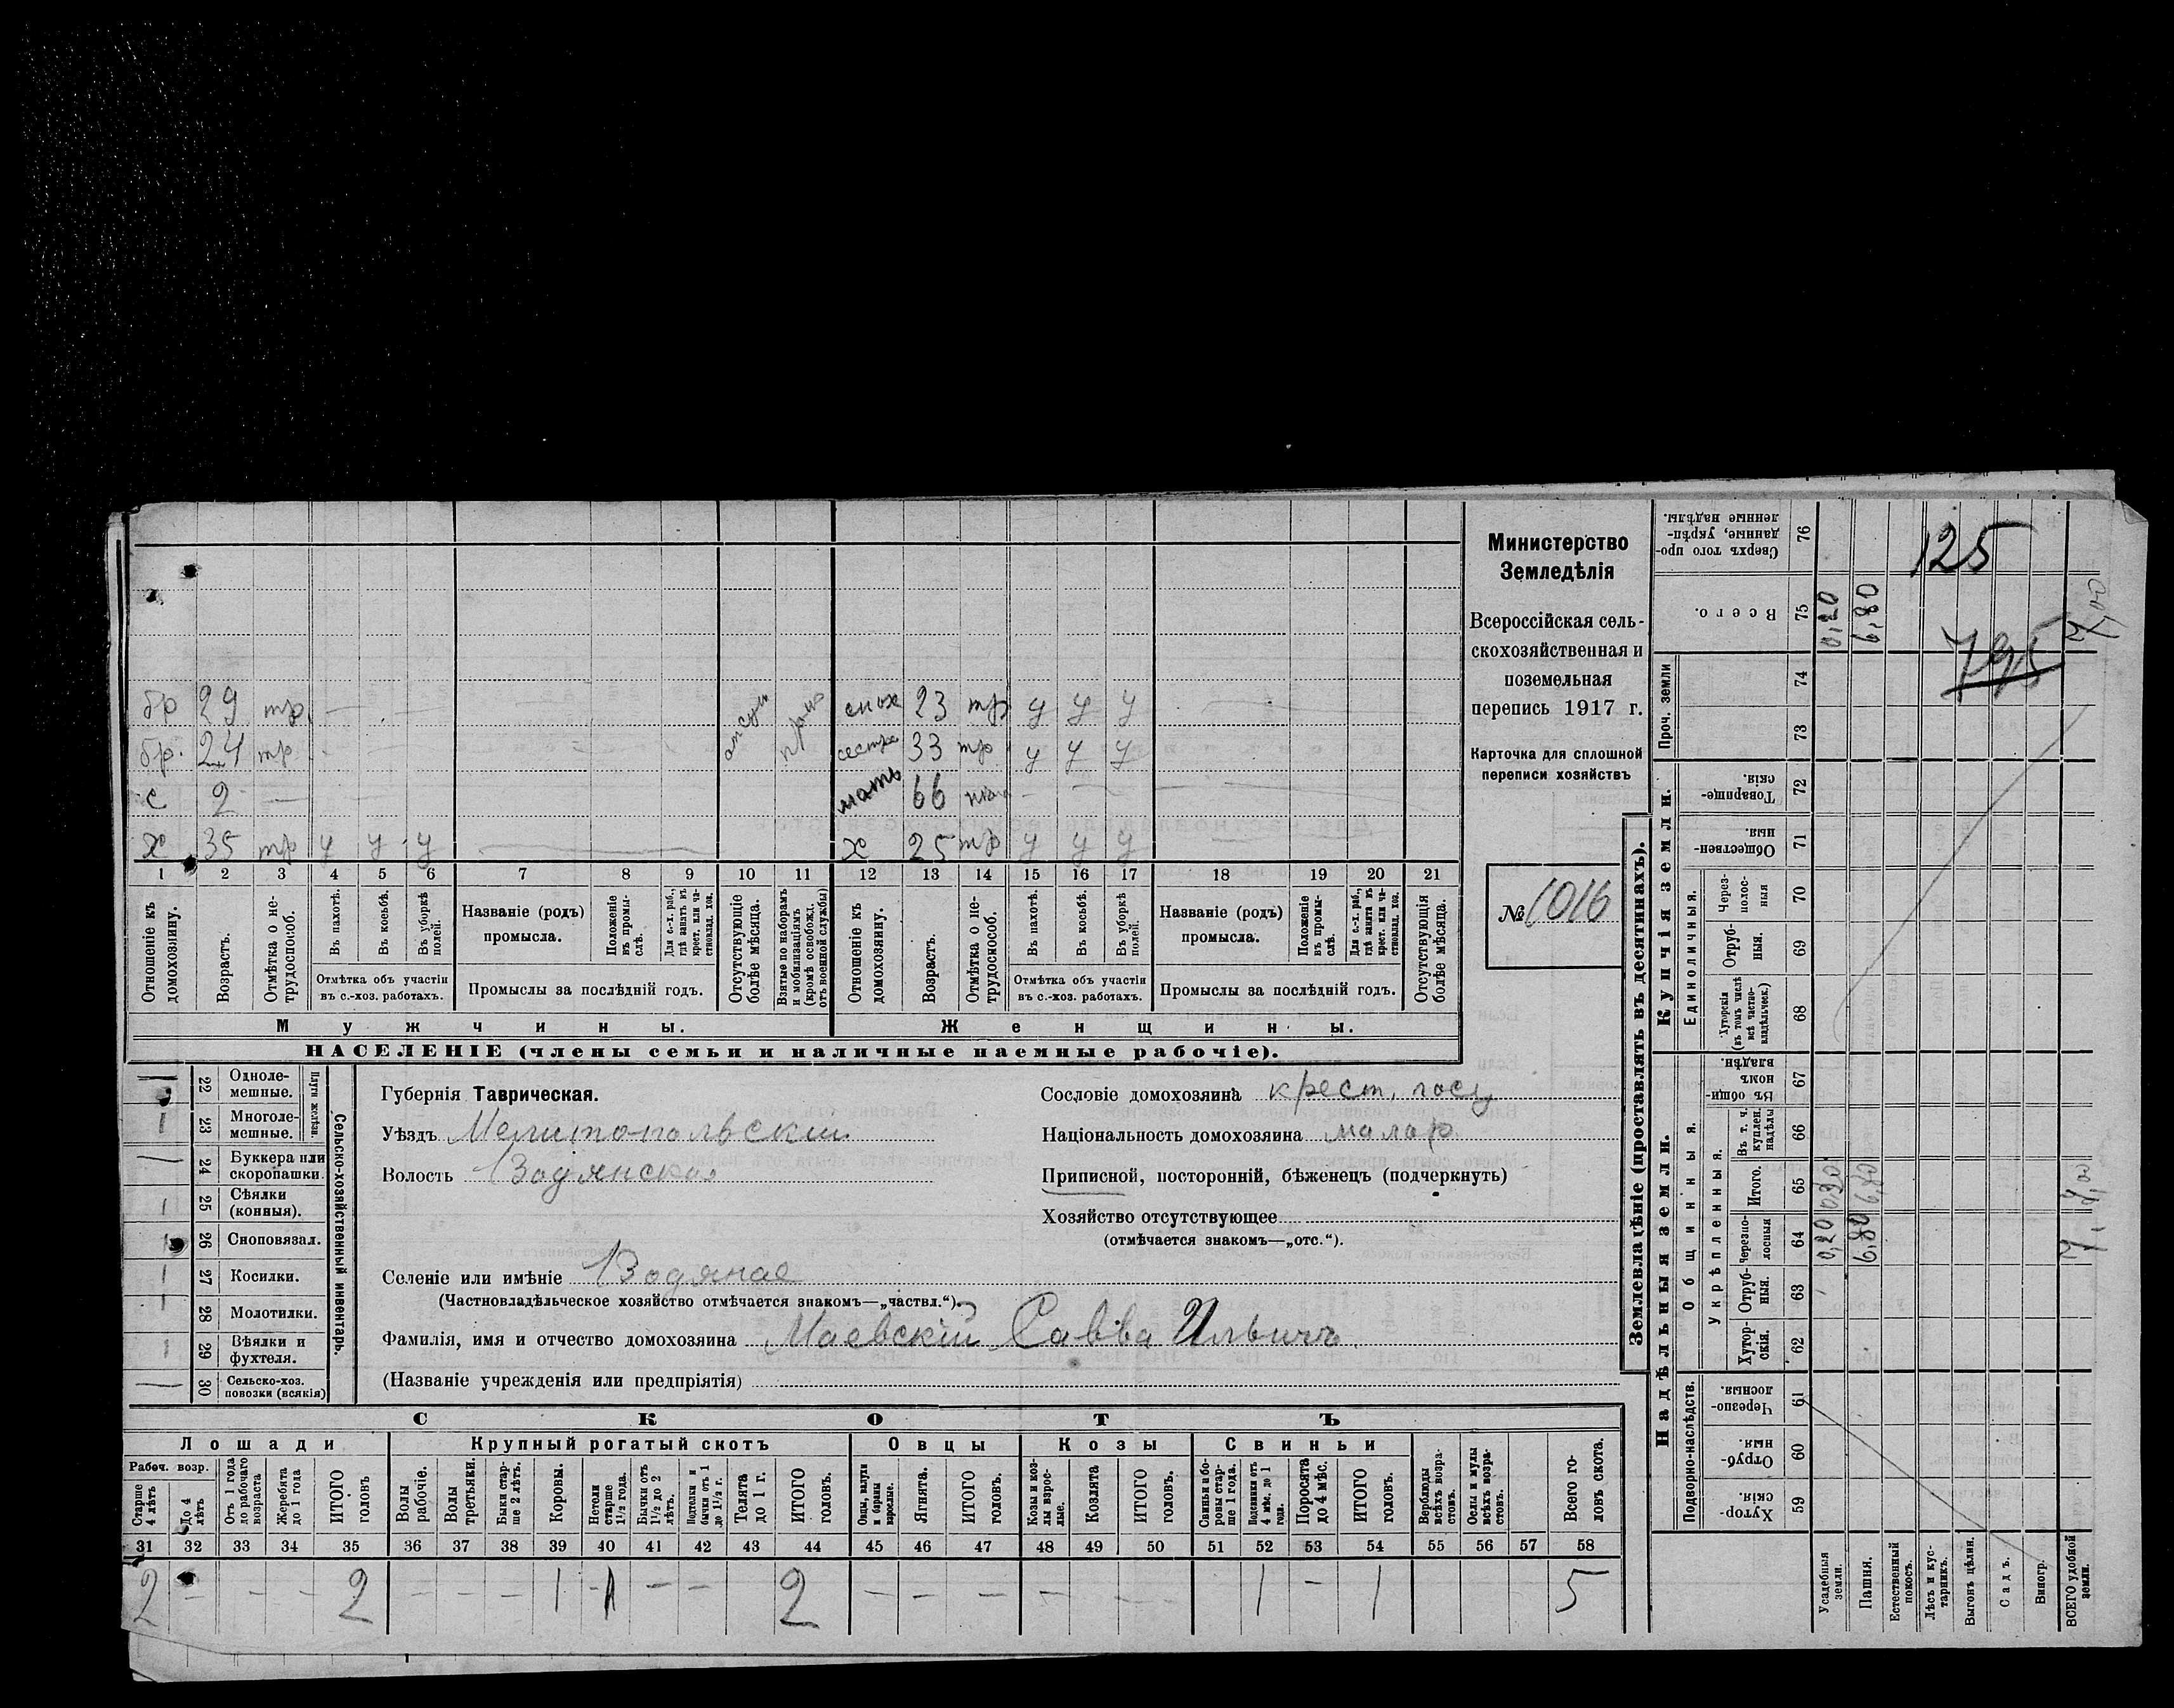 Министерство
Земледѣлія
Всероссійская сель-
скохозяйственная и
поземельная
перепись 1917 г.
Карточка для сплошной
переписи хозяйствъ
№ 1016
125
795
бр 29 тр. снох 23 тр у у у
бр. 24 тр сестра 33 тр у у у
с 2 мать 66
х 35 тр у у у х 25 тр у у у
1 2 3 4 5 6 7 8 9 10 11 12 13 14 15 16 17 18 19 20 21
Отношеніе къ домохозяину.
Возрастъ.
Отмѣтка о не-трудоспособ.
Въ пахотѣ.
Въ косьбѣ.
Въ уборкѣ полей.
Отмѣтка объ участіи
въ с.-хоз. работахъ.
Названіе (родъ)
промысла.
Положеніе въ промы-слѣ.
Для с.-х. раб., гдѣ занятъ въ крест. или ча-стновлад. хоз.
Промыслы за послѣдній годъ.
Отсутствующіе болѣе мѣсяца.
Взятые по наборамъ и мобилизаціямъ (кромѣ освобожд. отъ военной службы)
Отношеніе къ домохозяину.
Возрастъ.
Отмѣтка о не-трудоспособ.
Въ пахотѣ.
Въ косьбѣ.
Въ уборкѣ полей.
Отмѣтка объ участіи
въ с.-хоз. работахъ.
Названіе (родъ)
промысла.
Положеніе въ промы-слѣ.
Для с.-х. раб., гдѣ занята въ крест. или ча-стновлад. хоз.
Промыслы за послѣдній годъ.
Отсутствующія болѣе мѣсяца.
Мужчины. Женщины.
НАСЕЛЕНІЕ (члены семьи и наличные наемные рабочіе).
Сельско-хозяйственный инвентарь.
Плуги желѣзн.
22 Одноле-мешные.
1 23 Многоле-мешные.
24 Буккера или скоропашки.
1 25 Сѣялки (конныя).
26 Сноповязал.
1 27 Косилки.
1 28 Молотилки.
1 29 Вѣялки и фухтеля.
30 Сельско-хоз. повозки (всякія)
Губернія Таврическая.
Уѣздъ Мелитопольскій
Волость Водянская
Селеніе или имѣніе Водяное
(Частновладѣльческое хозяйство отмѣчается знакомъ—„частвл.“).
Фамилія, имя и отчество домохозяина Маевскій Савва Ильичъ
(Названіе учрежденія или предпріятія)
Сословіе домохозяина крест. госу
Національность домохозяина малор.
Приписной, посторонній, бѣженецъ (подчеркнуть)
Хозяйство отсутствующее
(отмѣчается знакомъ—„отс.“).
СКОТЪ
Лошади Крупный рогатый скотъ Овцы Козы Свиньи
Рабоч. возр.
Старше 4 лѣтъ
До 4 лѣтъ
Отъ 1 года до рабочаго возраста
Жеребята до 1 года
ИТОГО головъ
Волы рабочіе.
Волы третьяки.
Быки стар-ше 2 лѣтъ.
Коровы.
Нетели старше 1½ года.
Бычки отъ 1½ до 2 лѣтъ.
Подтелки и бычки отъ 1 до 1½ г.
Телята до 1 г.
ИТОГО головъ.
Овцы, валухи и бараны взрослые.
Ягнята.
ИТОГО головъ.
Козы и коз-лы взрос-лые.
Козлята
ИТОГО головъ.
Свиньи и бо-ровы стар-ше 1 года.
Подсвинки отъ 4 мѣс. до 1 года.
Поросята до 4 мѣс.
ИТОГО головъ.
Верблюды всѣхъ возра-стовъ.
Ослы и мулы всѣхъ возра-стовъ.
Всего го-ловъ скота.
31 32 33 34 35 36 37 38 39 40 41 42 43 44 45 46 47 48 49 50 51 52 53 54 55 56 57 58
2 – – – 2 – – – 1 1 – – 2 – – – – – 1 – 1 5
Землевладѣніе (проставлять въ десятинахъ).
Надѣльныя земли. Купчія земли.
Подворно-наслѣдств.
Общинныя.
Укрѣпленныя.
Единоличныя.
Проч. земли
59 Хутор-скія.
60 Отруб-ныя.
61 Черезпо-лосныя.
62 Хутор-скія.
63 Отруб-ныя.
64 Черезпо-лосныя
65 Итого.
66 Въ т. ч. куплен. надѣлы
67 Въ общи-номъ владѣн.
68 Хуторскія (въ томъ числѣ всѣ частно-владѣльческ.)
69 Отруб-ныя.
70 Через-полос-ныя
71 Обществен-ныя.
72 Товарище-скія.
73
74
75 Всего.
76 Сверхъ того про-данные, укрѣп-ленные надѣлы.
Усадебныя земли. 0,20 0,20 0,20
Пашня. 6,80 6,80 6,80
Естественный покосъ.
Лѣсъ и кус-тарникъ.
Выгонъ цѣлин.
Садъ.
Виногр.
ВСЕГО удобной земли. 7,00 7,00